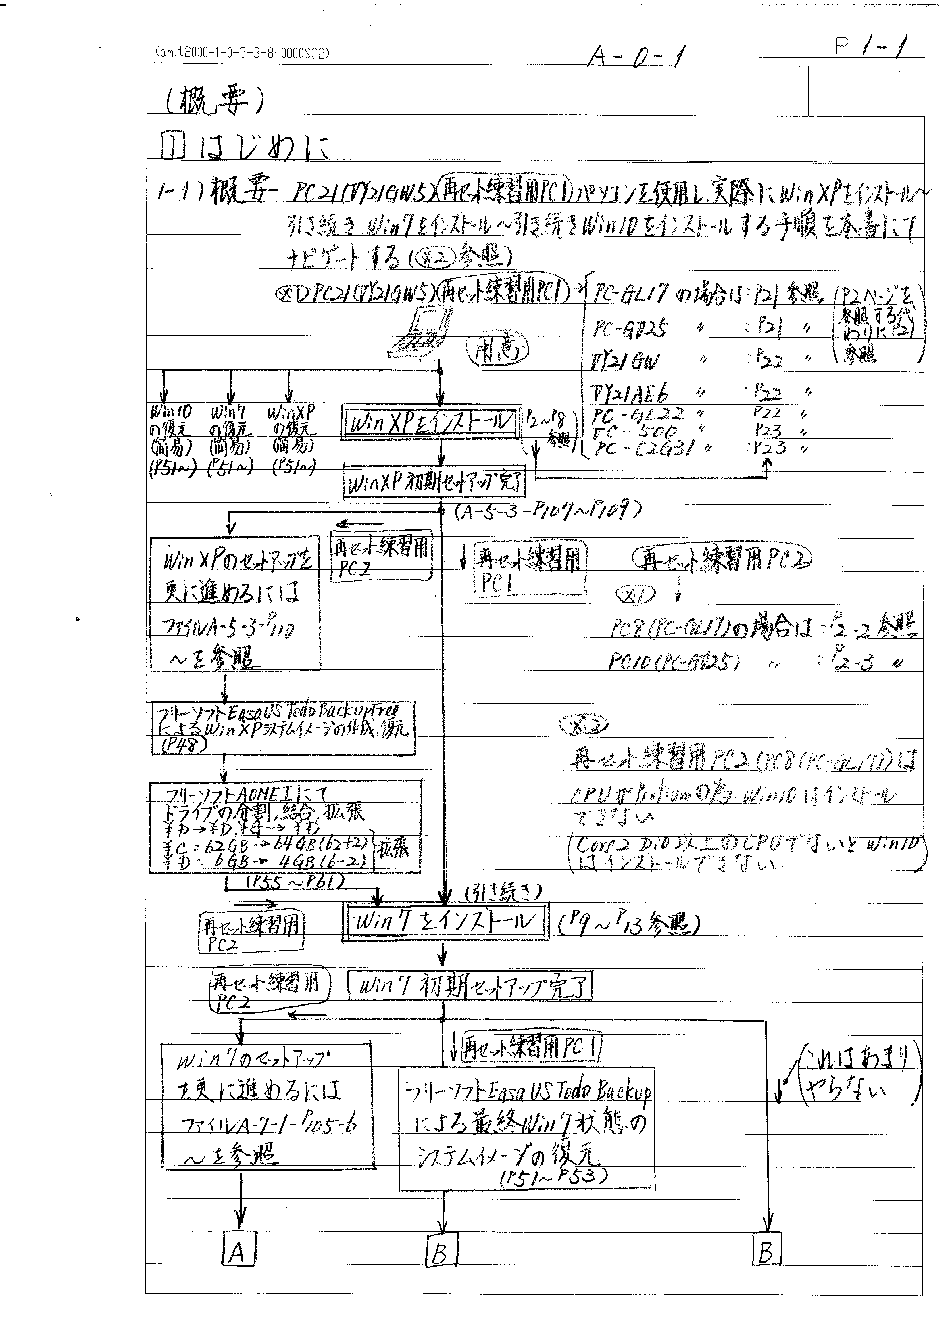 A-0-1
P1-1
(概要)
1 はじめに
1-1) 概要- PC21(TY21GW5)(再セット練習用PC1)パソコンを使用し、実際にWinXPをインストール〜
引き続きWin7をインストール〜引き続きWin10をインストールする手順を本書にて
ナビゲートする(※2)参照)
※1) PC21(TY21GW5)(再セット練習用PC1)
PC-GL17の場合は:P21参照
PC-GD25 〃 :P21 〃
TY21GW 〃 :P22 〃
TY21AE6 〃 :P22 〃
PC-GL22 〃 P22 〃
PC-500 〃 P23 〃
PC-C2G31 〃 :P23 〃
(P2ページを
参照する代
わりに
参照)
用意
Win10
の復元
(簡易)
(P51〜)
Win7
の復元
(簡易)
(P51〜)
WinXP
の復元
(簡易)
(P51〜)
WinXPをインストール
(P2〜P8
参照)
WinXP初期セットアップ完了
(A-5-3-P107〜P109)
再セット練習用
PC2
再セット練習用
PC1
再セット練習用PC2
WinXPのセットアップを
更に進めるには
ファイルA-5-3-P110
〜を参照
※1)
PC8(PC-GL17)の場合は:P2-2参照
PC10(PC-GD25) 〃 :P2-3 〃
フリーソフトEasaUS Todo Backup Free
によるWinXPシステムイメージの作成、復元
(P48)
※2
再セット練習用PC2(PC8(PC-GL17))は
CPUが の為、Win10はインストール
できない
(Core2 Duo以上のCPUでないとWin10
はインストールできない)
フリーソフトAOMEIにて
ドライブの分割、結合、拡張
¥C=62GB→64GB(62+2)
¥D=6GB→4GB(6-2)
拡張
(P55〜P61)
(引き続き)
再セット練習用
PC2
Win7をインストール
(P9〜P13参照)
再セット練習用
PC2
Win7初期セットアップ完了
再セット練習用PC1
(これはあまり
やらない)
Win7のセットアップ
を更に進めるには
ファイルA-7-1-P105-6
〜を参照
フリーソフトEasaUS Todo Backup
による最終Win7状態の
システムイメージの復元
(P51〜P53)
A
B
B